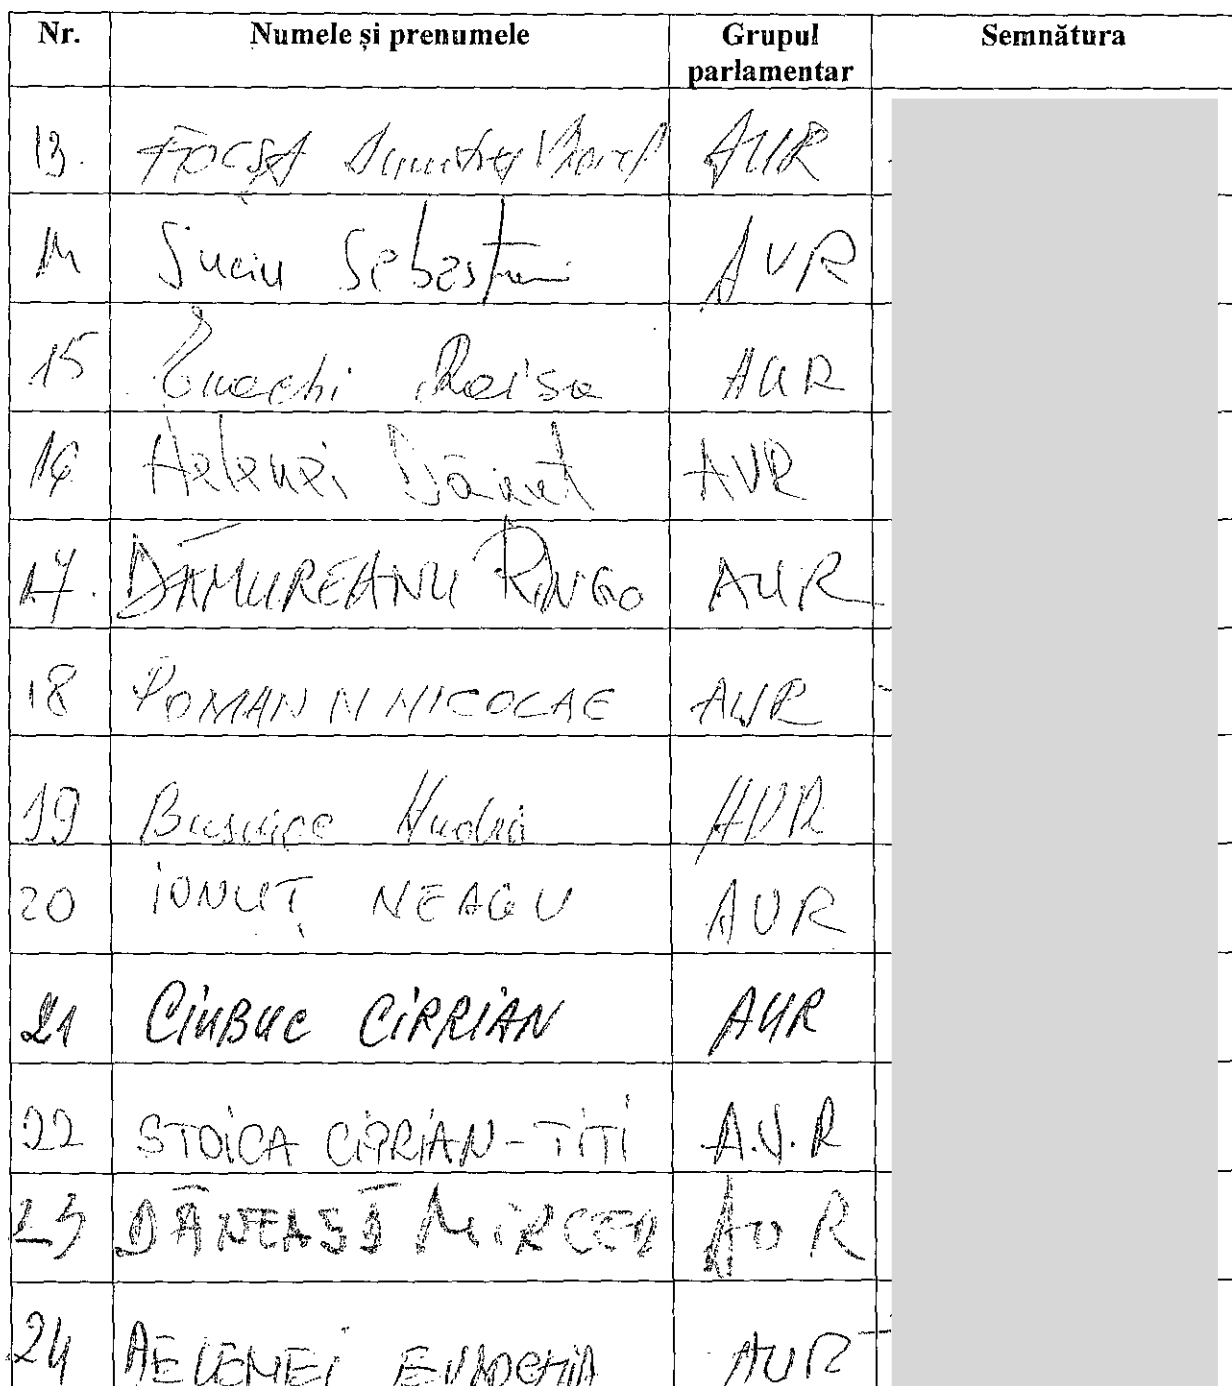 Nr. Numele și prenumele Grupul parlamentar Semnătura
13. FOCȘA Dumitru Viorel AUR
14 Suciu Sebastian AUR
15 Enachi Raisa AUR
16 Aelenei Dănuț AUR
17. DĂMUREANU RINGO AUR
18 ROMAN N NICOLAE AUR
19 Busuioc Andrei AUR
20 IONUȚ NEAGU AUR
21 CIUBUC CIPRIAN AUR
22 STOICA CIPRIAN-TITI A.U.R
23 DĂNEASĂ MIRCEA AUR
24 AELENEI EVDOCHIA AUR